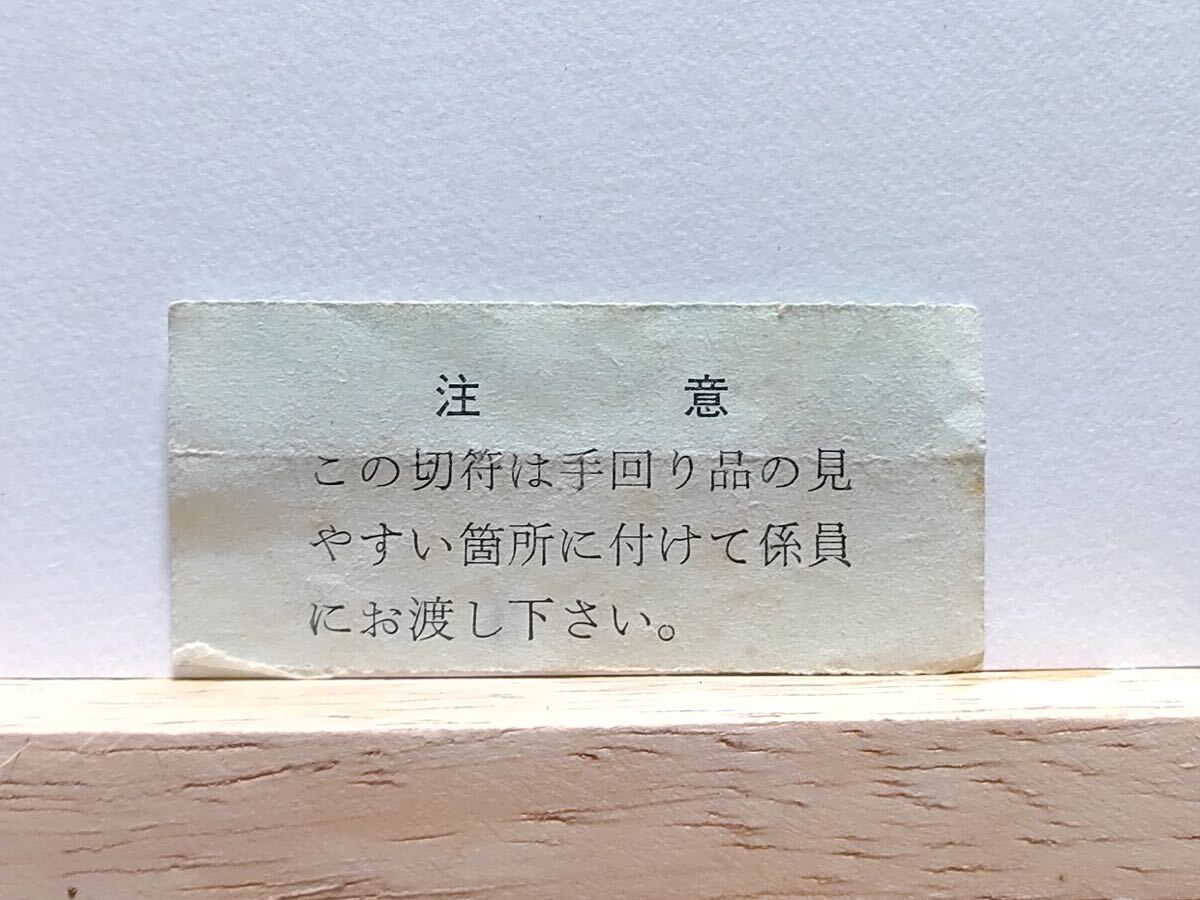 注意
この切符は手回り品の見
やすい箇所に付けて係員
にお渡し下さい。